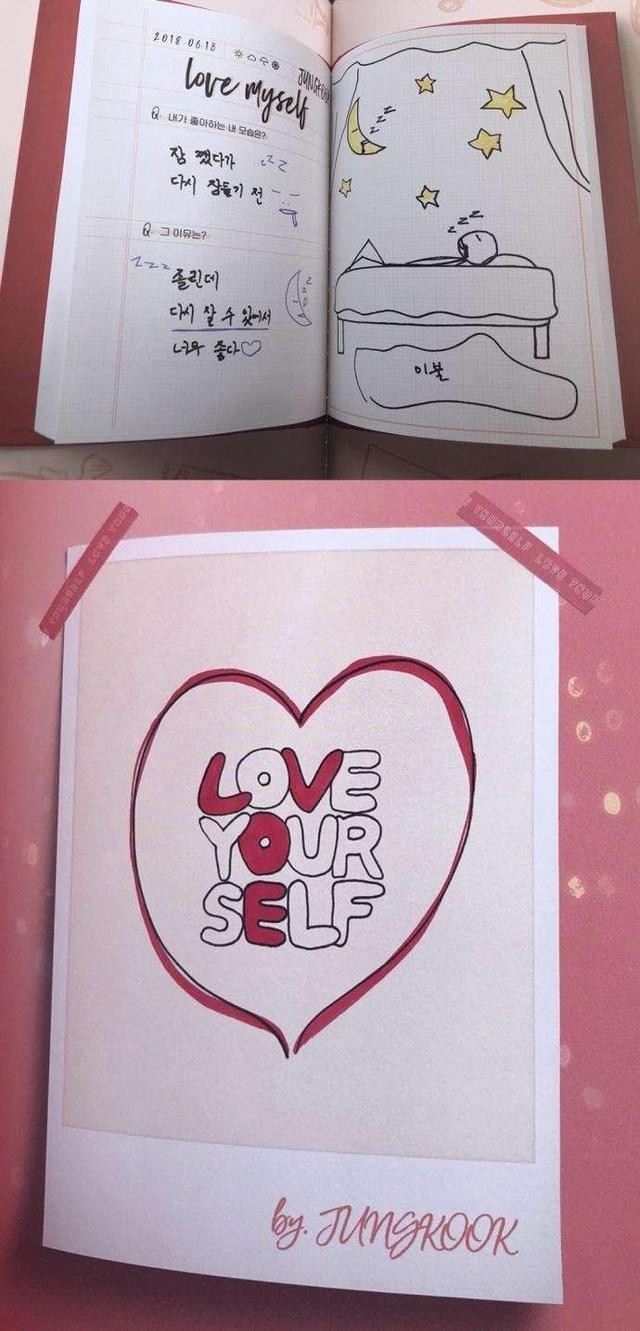 2018.06.13
JUNGKOOK
love myself
Q. 내가 좋아하는 내 모습은?
잠 깼다가 zzz
다시 잠들기 전
Q. 그 이유는?
zzz
졸린데
다시 잘 수 있어서
너무 좋다♡
zzz
zzz
zzz
이불
YOURSELF LOVE YOUR
LOVE
YOUR
SELF
by. JUNGKOOK